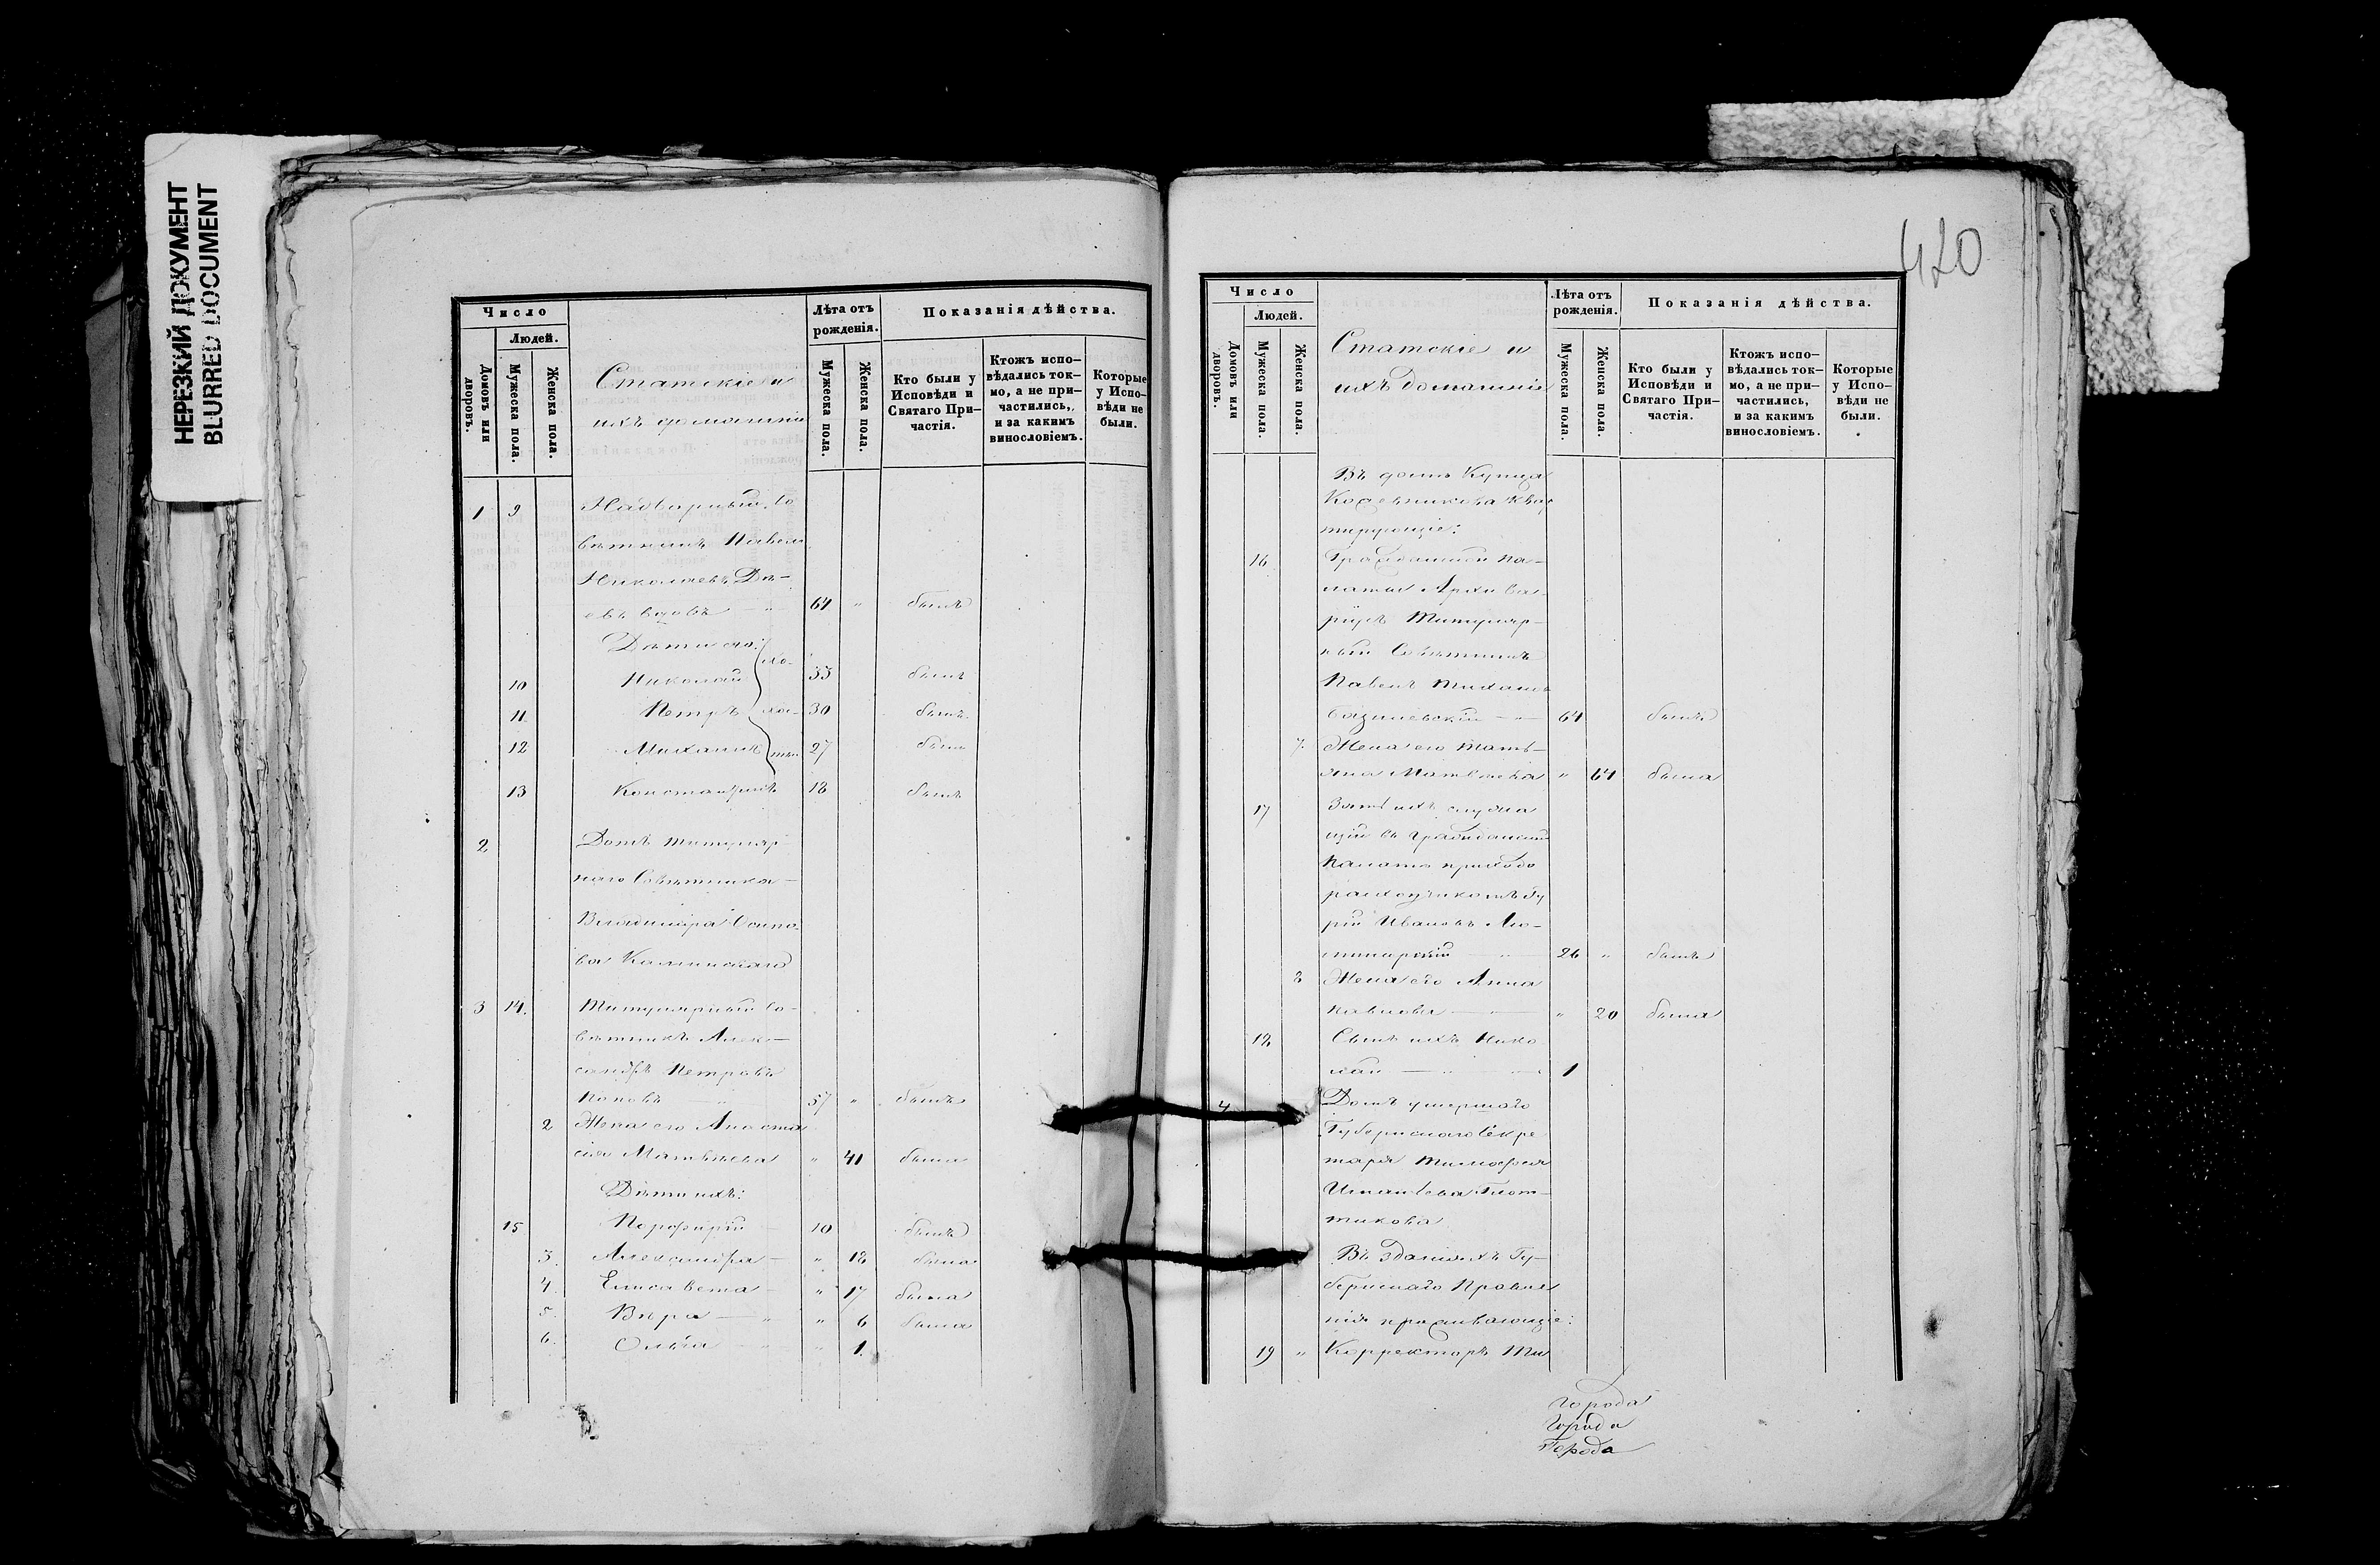 НЕРЕЗКИЙ ДОКУМЕНТ
BLURRED DOCUMENT
Число
Людей.
Домовъ или дворовъ.
Мужеска пола.
Женска пола.
Статскіе и
ихъ домашніе
Лѣта отъ рожденія.
Мужеска пола.
Женска пола.
Показанія дѣйства.
Кто были у Исповѣди и Святаго При-
частія.
Ктожъ испо-
вѣдались ток-
мо, а не при-
частились,
и за какимъ
винословіемъ.
Которые
у Испо-
вѣди не
были.
1 9 Надворный Со
вѣтникъ Павелъ
Николаевъ
вдовъ 64 " былъ
Дѣти его:
10 Николай 33 былъ
11. Петръ 30 былъ
12 Михаилъ 27 былъ
13 Константинъ 18 былъ
2 Домъ титуляр-
наго Совѣтника
Владиміра Осипо-
ва
3 14. Титулярный Со-
вѣтникъ Алек-
сандръ Петровъ
Поповъ 57 " былъ
2 Жена его Анаста
сія Матвѣева " 41 была
Дѣти ихъ:
15 Порфирій 10 былъ
3. Александра " 18 была
4. Елисавета " 17 была
5. Вѣра " 6 была
6. Ольга " 1.
420
Число
Людей.
Домовъ или дворовъ.
Мужеска пола.
Женска пола.
Статскіе и
ихъ домашніе
Лѣта отъ
рожденія.
Мужеска пола.
Женска пола.
Показанія дѣйства.
Кто были у
Исповѣди и
Святаго При-
частія.
Ктожъ испо-
вѣдались ток-
мо, а не при-
частились,
и за какимъ
винословіемъ.
Которые
у Испо-
вѣди не
были.
Въ домѣ Купца
Кожевникова квар
тирующіе:
16 Гражданской па-
латы Архива-
ріусъ Титуляр-
ный Совѣтникъ
Павелъ
Базилевскій 64 былъ
7. Жена его Тать-
яна Матвѣева " 64 была
17 Зять ихъ служа
щій въ Гражданской
Палатѣ приходо
расходчикомъ Гу
рій Ивановъ
26 " былъ
8 Жена его Анна
Павлова " 20 была
18 Сынъ ихъ Нико
лай 1
4 Домъ умершаго
Губернскаго Секре
таря Тимофея
Игнатьева
Въ зданіяхъ Гу-
бернскаго Правле
нія проживающіе:
19 " Корректоръ Ти
Города
Города
Города